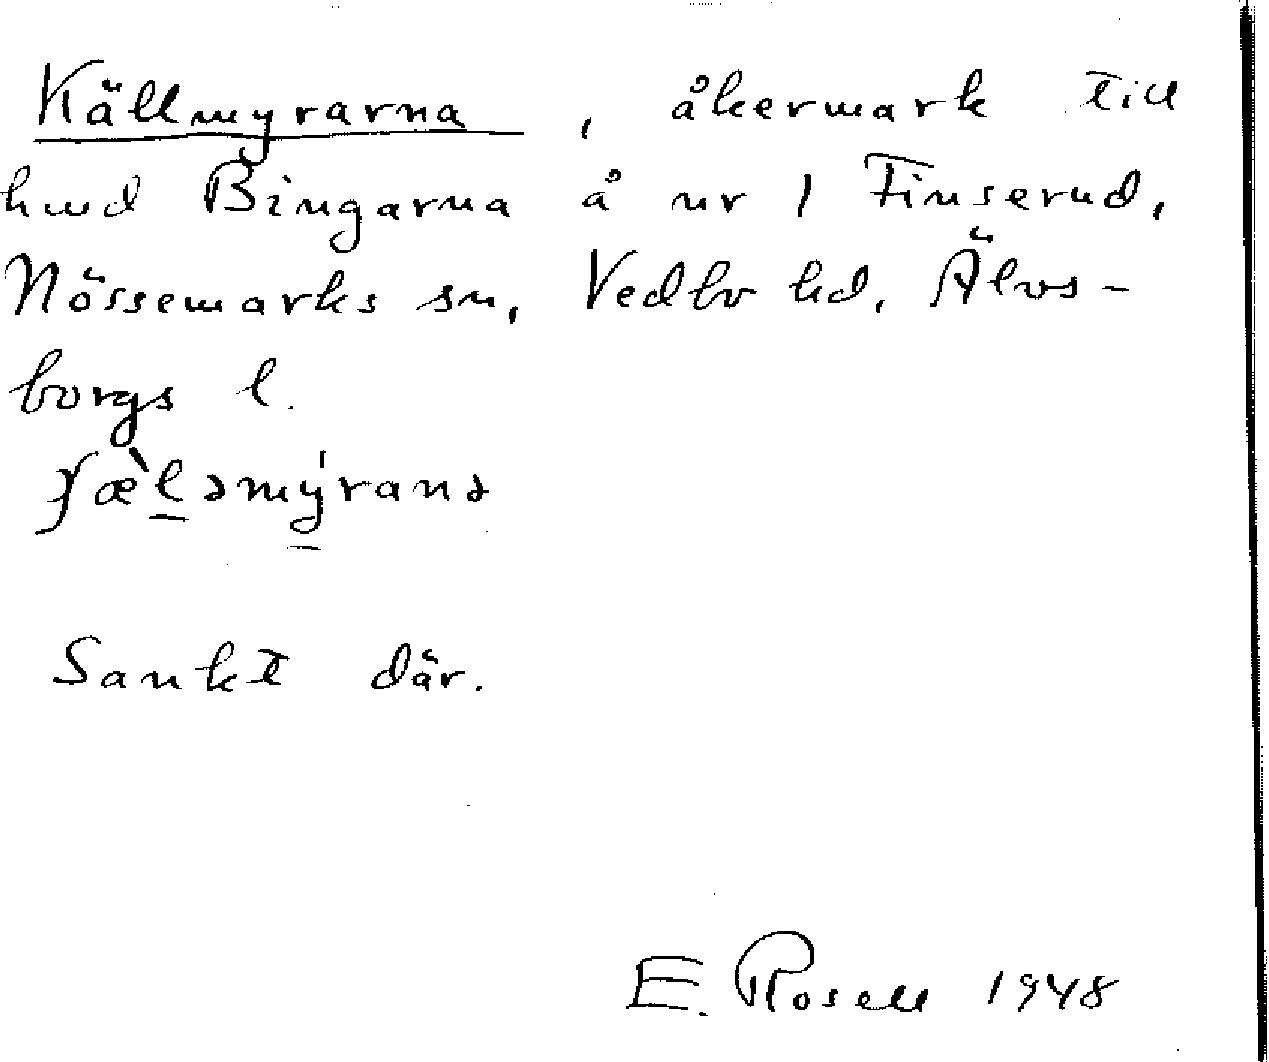 Källmyrarna, åkermark till
hmd Bingarna å nr 1 Finserud,
Nössemarks sn, Vedbo hd, Älvs-
borgs l.
ʃæ̀ləmýranə
Sankt där.
E. Rosell 1948